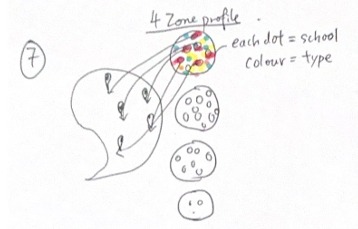 4 Zone profile.
7
each dot = school
colour = type